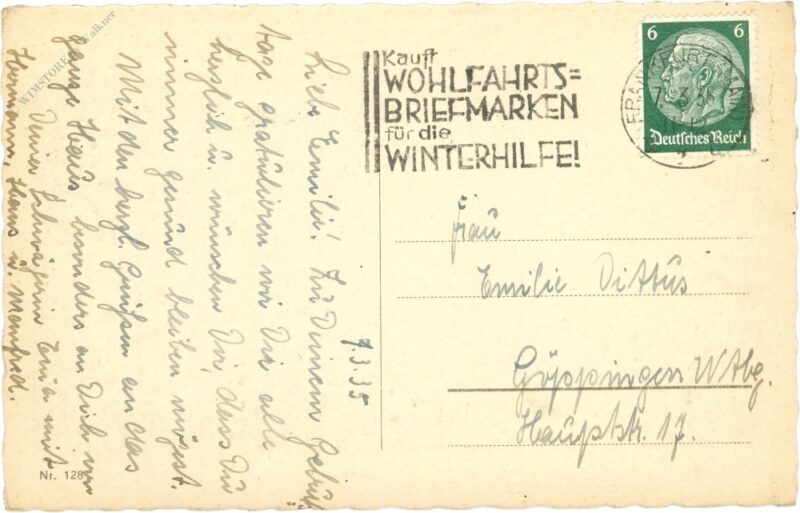 Kauft
WOHLFAHRTS=
BRIEFMARKEN
für die
WINTERHILFE!
6 6
Deutsches Reich
FRANKFURT MAIN
7.3.35
Liebe Emilie! Zu Deinem Geburts
tage gratulieren wir Dir alle
herzlich u. wünschen Dir, dass Du
immer gesund bleiben mögest.
Mit den herzl. Grüßen an das
ganze Haus besonders an Dich von
Deiner Schwägerin mit
Hermann, Hans u Manfred.
Frau
Emilie Dittus
Göppingen Wtbg.
Hauptstr. 17.
Nr. 128
WIMSTORE Walkner